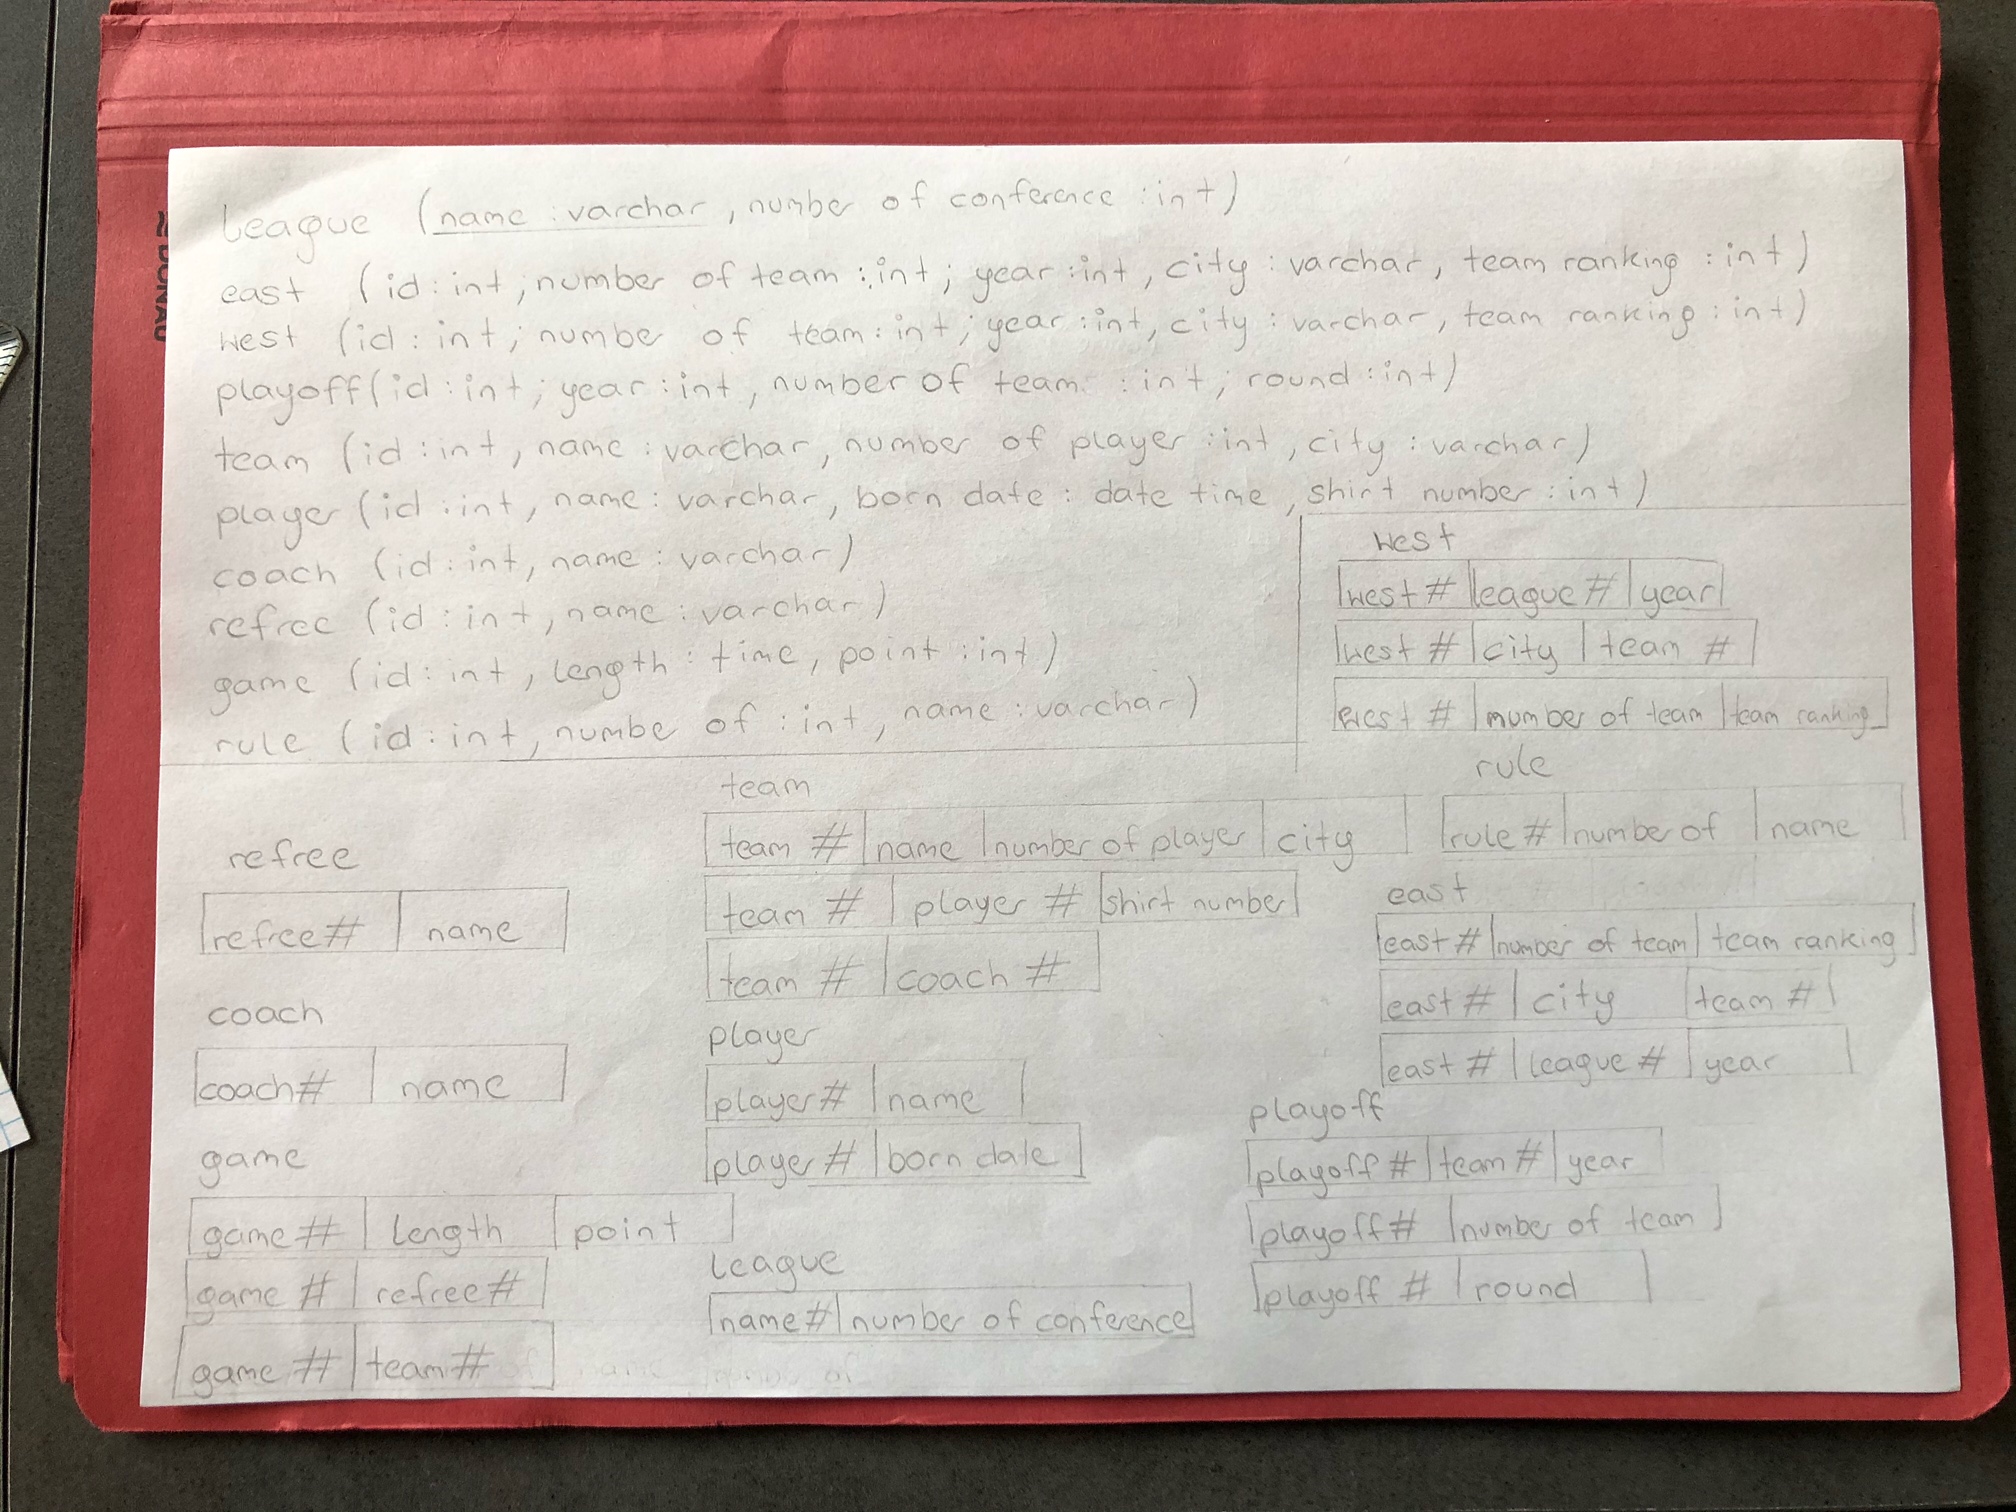 league (name : varchar, number of conference : int)
east (id : int ; number of team : int ; year : int , city : varchar, team ranking : int)
west (id : int ; number of team : int ; year : int, city : varchar, team ranking : int)
playoff (id : int ; year : int, number of team : int , round : int)
team (id : int , name : varchar, number of player : int , city : varchar)
player (id : int, name : varchar, born date : date time , shirt number : int)
coach (id : int, name : varchar)
refree (id : int , name : varchar)
game (id : int , length : time, point : int)
rule (id : int, numbe of : int , name : varchar)
refree
refree# name
coach
coach# name
game
game# length point
game # refree#
game # team#
team
team # name number of player city
team # player # shirt number
team # coach #
player
player# name
player# born date
league
name# number of conference
west
west # league # year
west # city team #
west # number of team team ranking
rule
rule # number of name
east
east # number of team team ranking
east # city team #
east # league # year
playoff
playoff # team # year
playoff # number of team
playoff # round
DONAU